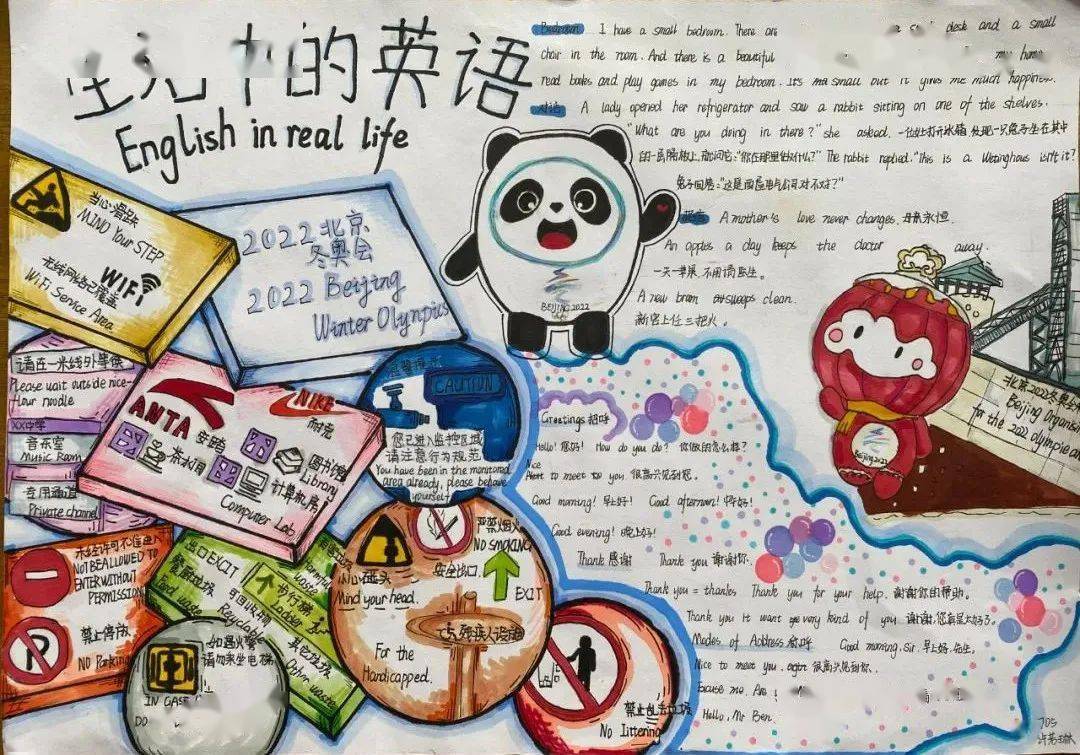 的英语
English in real life
Bedroom I have a small bedroom. There are
desk and a small
chair in the room. And there is a beautiful
read books and play games in my bedroom. It's
small but it gives me much happiness.
对话 A lady opened her refrigerator and saw a rabbit sitting on one of the shelves.
"What are you doing in there?" she asked.
The rabbit replied. "This is a Westinghous isn't it?
兔子回答:"这是西屋电气公司对不对?"
A mother's love never changes. 母亲永恒.
An apples a day keeps the doctor away.
一天一苹果,不用请医生。
A new bram sweeps clean.
新官上任三把火。
当心滑跌
MIND Your STEP
无线网络已覆盖
WiFi
WiFi Service Area
2022北京
冬奥会
2022 Beijing
Winter Olympics
BEIJING 2022
Beijing2022
北京2022冬奥
Beijing Organis
for the 2022 olympic a
请在一米线外等候
Please wait outside nice-
flour noodle
XX中学
音乐室
Music Room
专用通道
Private channel
ANTA
安踏
NIKE
耐克
茶水间
图书馆
Library
计算机房
Computer Lab
温馨提示
CAUTION
您已进入监控区域
请注意行为规范
You have been in the monitored
area already, please behave
yourself
未经许可不准进入
NOT BE ALLOWED TO
ENTER WITHOUT
PERMISSION
禁止停放
No Parking
出口 EXIT
厨余垃圾
Food Waste
可回收物
Recyclable
步行梯
Ladder
Harmful
waste
其它垃圾
Other waste
如遇火警
请勿乘坐电梯
IN CASE
DO
小心碰头
Mind your head.
严禁烟火
NO SMOKING
安全出口
EXIT
残疾人设施
For the
Handicapped.
禁止乱丢垃圾
No littering
Greetings 招呼
Hello! 您好! How do you do? 你做的怎么样?
Nice
to meet to you. 很高兴见到您.
Good morning! 早上好! Good afternoon! 中午好!
Good evening! 晚上好!
Thank 感谢 Thank you 谢谢你.
Thank you = thanks Thank you for your help. 谢谢你的帮助.
Thank you it want yo very kind of you 谢谢,您真是太好了.
Modes of Address 称呼 Good morning, Sir. 早上好,先生.
Nice to meet you, again 很高兴见到你.
Excuse me. Am
Hello, Mr Ben.
705